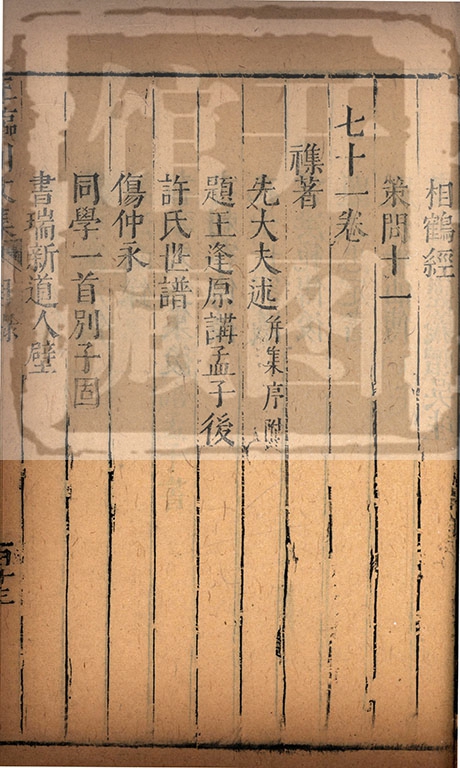 相鶴經
策問十一
七十一卷
襍著
先大夫述 并集序附
題王逢原講孟子後
許氏世譜
傷仲永
同學一首别子固
書瑞新道人壁